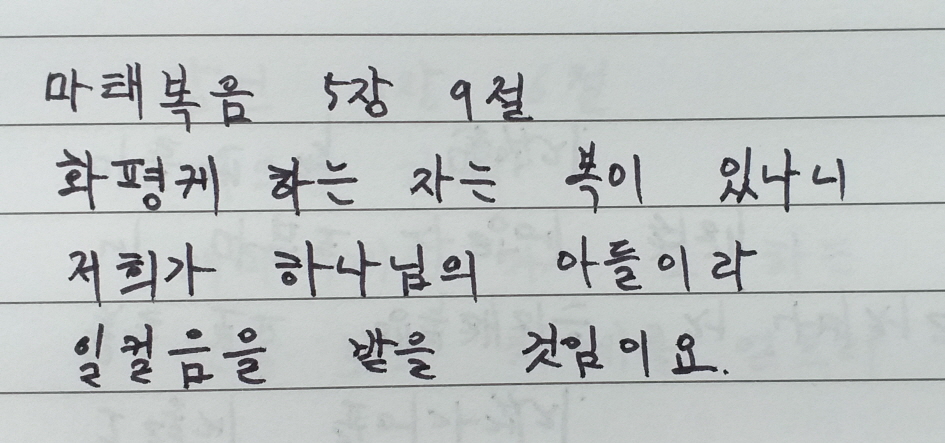 마태복음 5장 9절
화평케 하는 자는 복이 있나니
저희가 하나님의 아들이라
일컬음을 받을 것임이요.